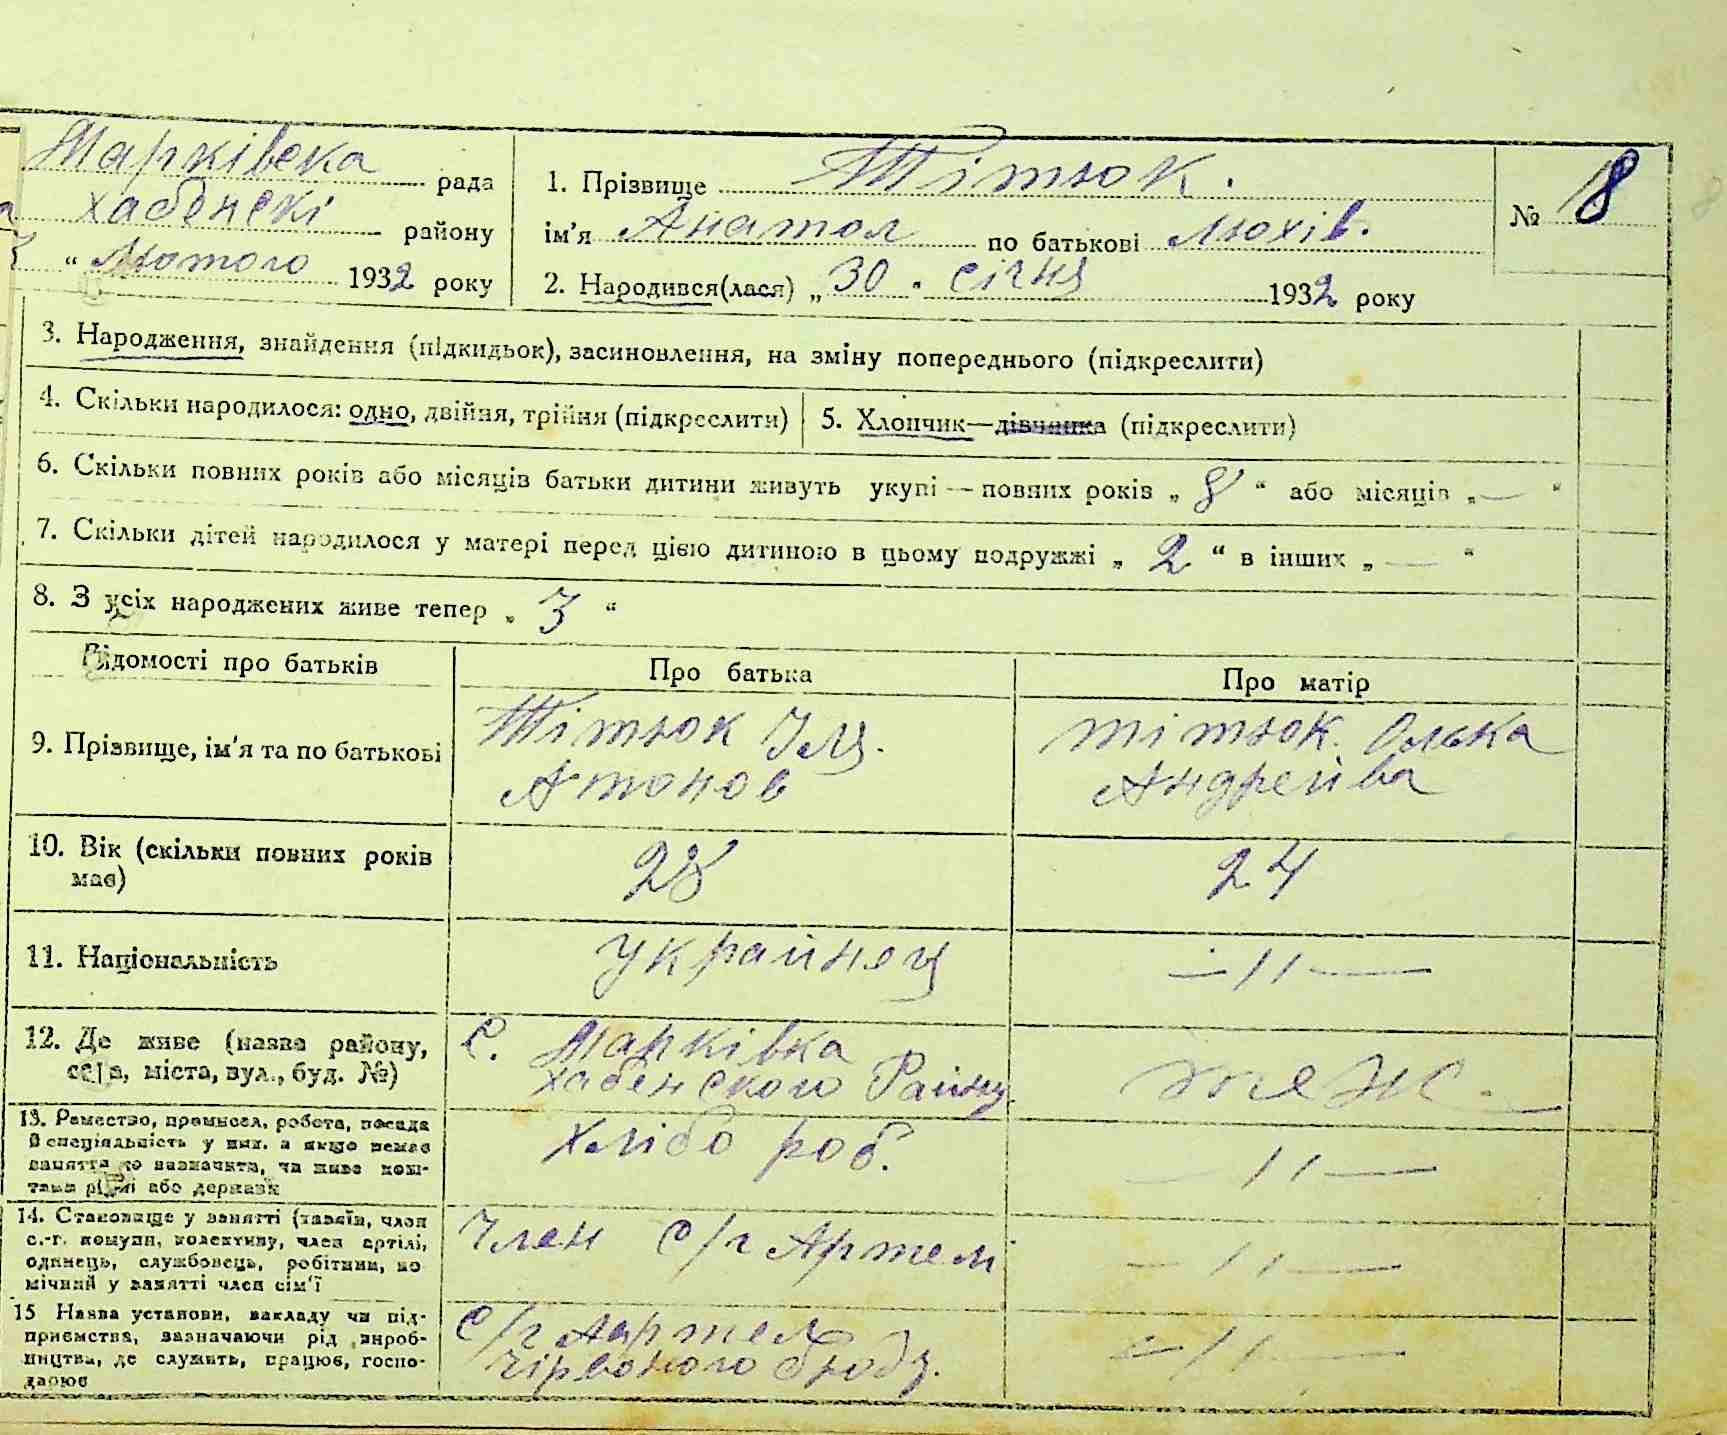 Марківска рада
хабенскі району
" Лютого 1932 року
1. Прізвище Тітюк.
ім'я Анатол по батькові Люхів.
2. Народився(лася) „30" січня 1932 року
№ 18
3. Народження, знайдення (підкидьок), засиновлення, на зміну попереднього (підкреслити)
4. Скільки народилося: одно, двійня, трійня (підкреслити)
5. Хлопчик—дівчинка (підкреслити)
6. Скільки повних років або місяців батьки дитини живуть укупі — повних років „ 8 " або місяців „ — "
7. Скільки дітей народилося у матері перед цією дитиною в цьому подружжі „ 2 " в інших „ — "
8. З усіх народжених живе тепер „ 3 "
Відомості про батьків
Про батька
Про матір
9. Прізвище, ім'я та по батькові
Тітюк Іля.
Атонов
тітюк. Олька
Андрейва
10. Вік (скільки повних років
має)
28
24
11. Національність
украинец
— 〃 —
12. Де живе (назва району,
села, міста, вул., буд. №)
С. Марківка
хабенского Району.
теж.
13. Ремество, промисел, робота, посада
й спеціяльність у них, а якщо немає
заняття то зазначити, чи живе кош-
тами рідні або держави
хлібо роб.
— 〃 —
14. Становище у занятті (хазяїн, член
с.-г. комуни, колективу, член артілі,
одинець, службовець, робітник, по
мічний у занятті член сім'ї
Член с/г Артелі
— 〃 —
15 Назва установи, закладу чи під-
приємства, зазначаючи рід вироб-
ництва, де служить, працює, госпо-
дарює
с/г Аартел
Чірвоного
— 〃 —